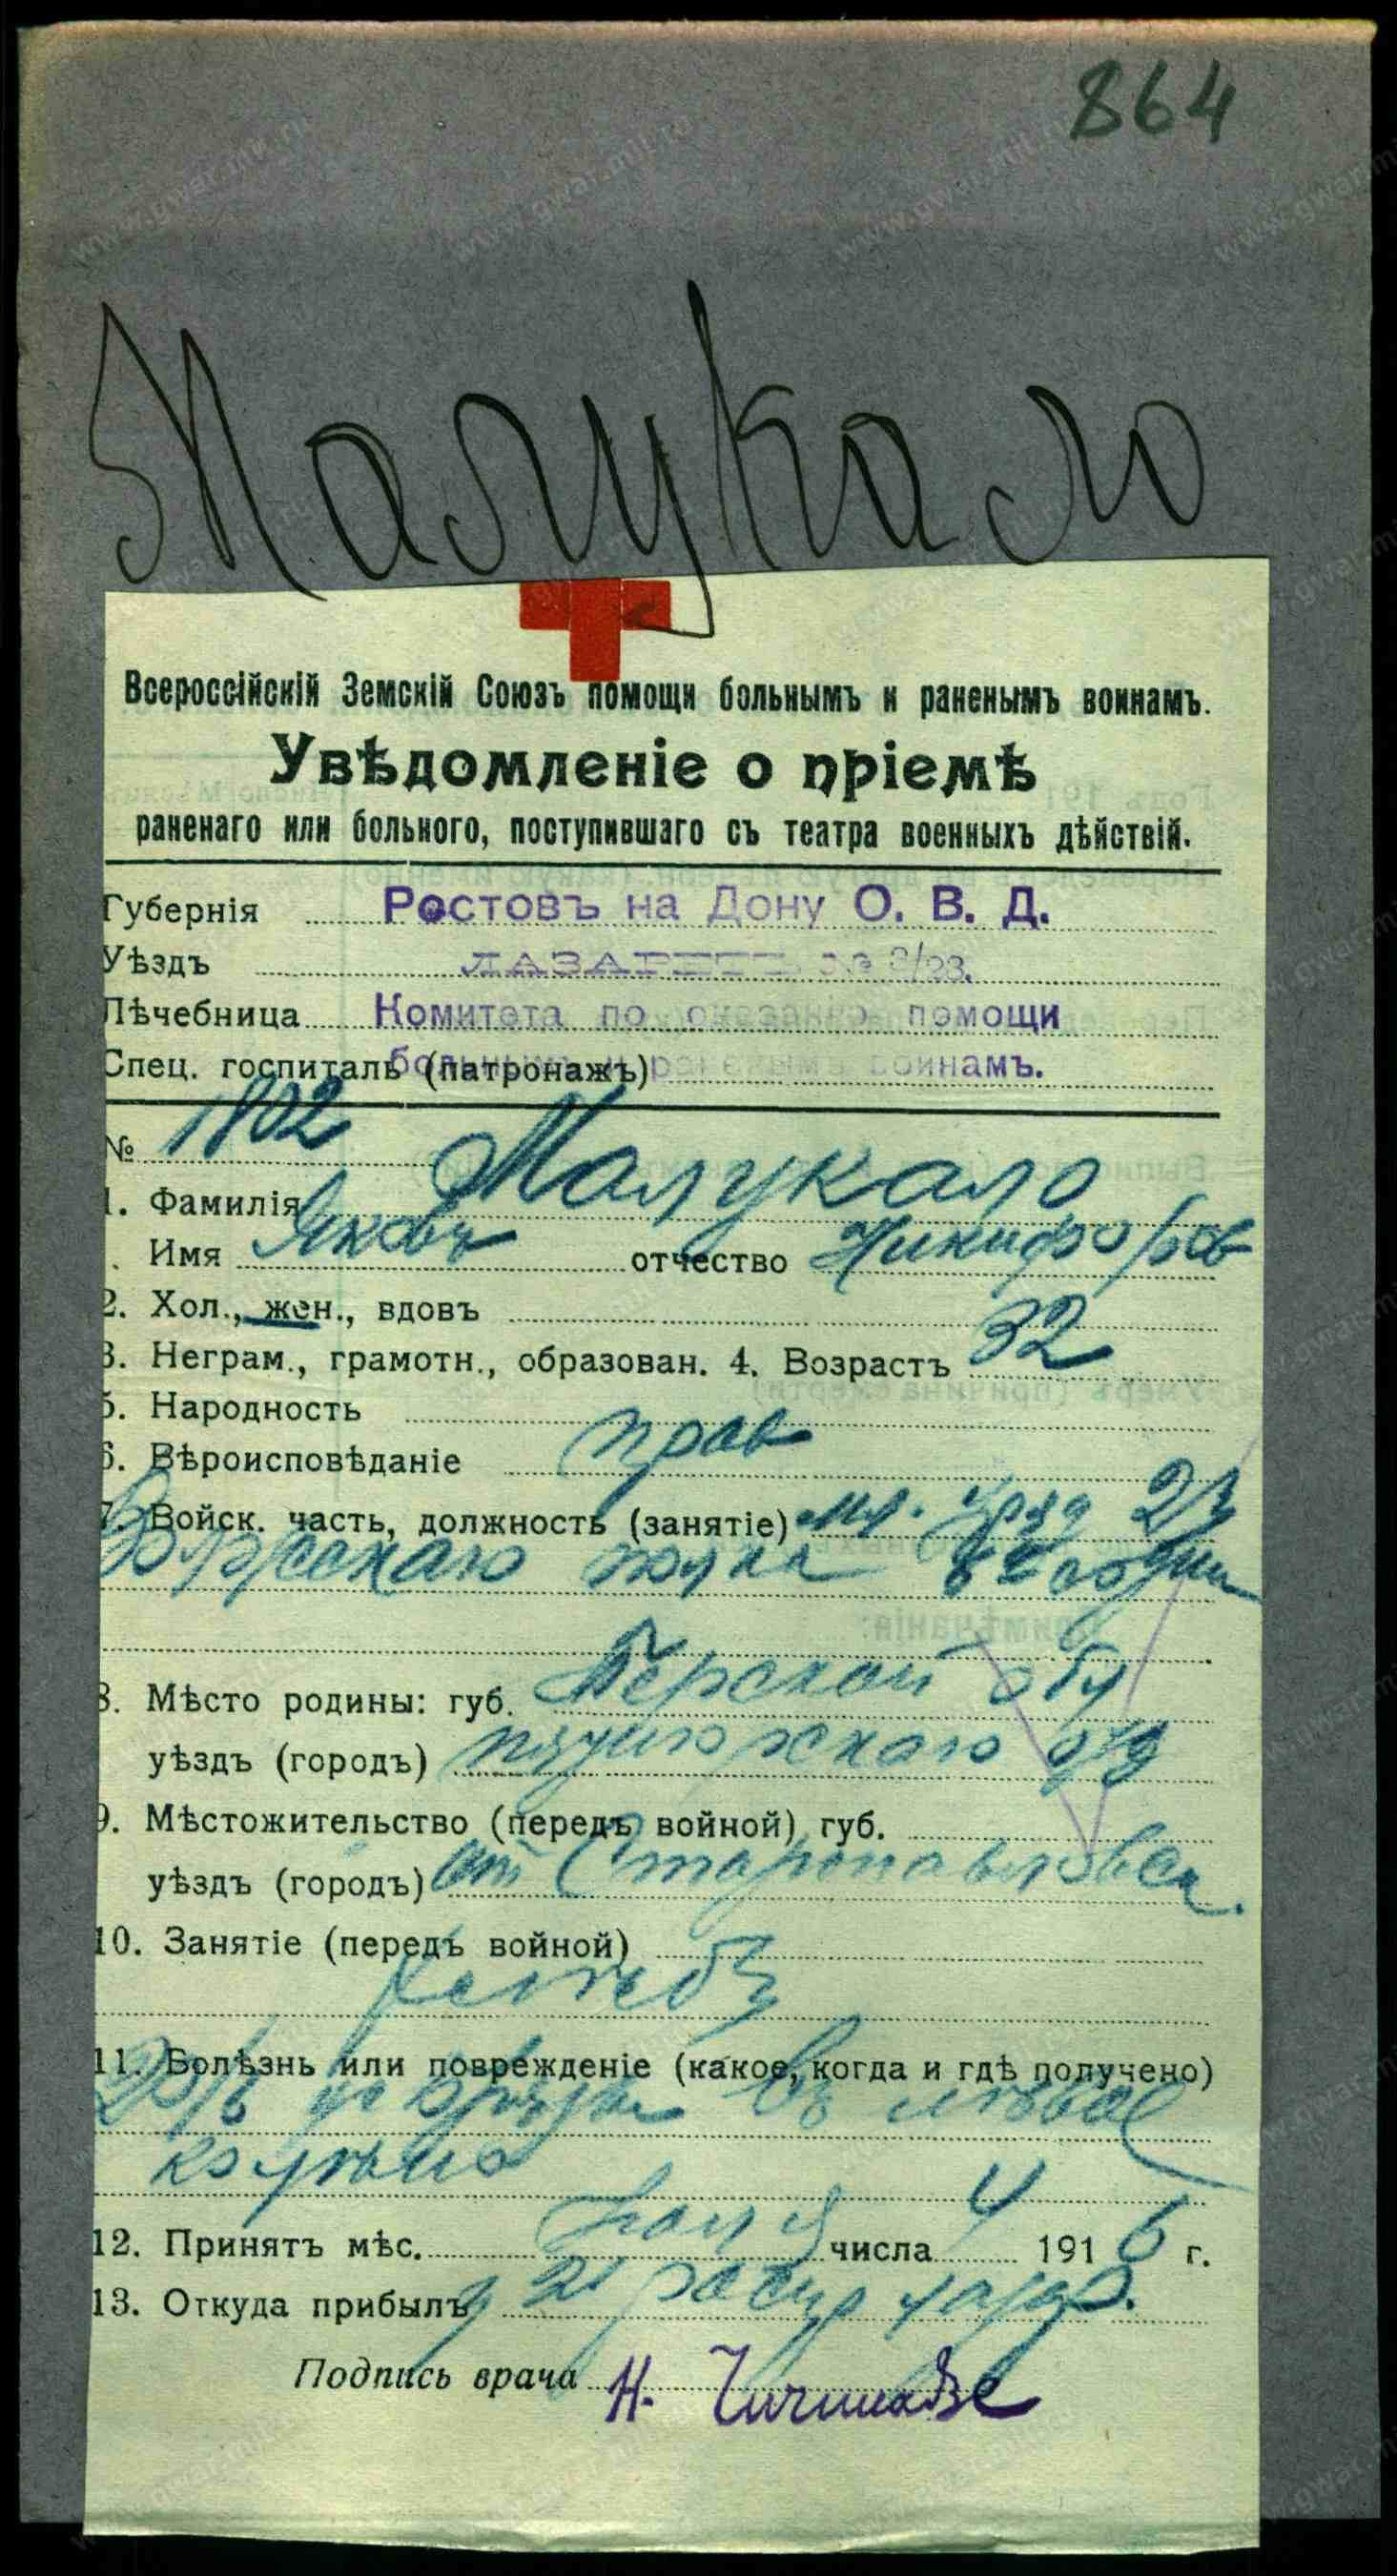 864
Малукало
Всероссійскій Земскій Союзъ помощи больнымъ и раненымъ воинамъ.
Увѣдомленіе о пріемѣ
раненаго или больного, поступившаго съ театра военныхъ дѣйствій.
Губернія Ростовъ на Дону О. В. Д.
Уѣздъ ЛАЗАРЕТЪ № /23.
Лѣчебница Комитета по оказанію помощи
Спец. госпиталь (патронажъ) больнымъ и раненымъ воинамъ.
№ 1802
1. Фамилія Малукало
Имя Яковъ отчество Никифоров
2. Хол., жен., вдовъ
3. Неграм., грамотн., образован. 4. Возрастъ 32
5. Народность
6. Вѣроисповѣданіе прав
7. Войск. часть, должность (занятіе) мл. Уряд 2й
Волжскаго полка
8. Мѣсто родины: губ. Терской обл
уѣздъ (городъ) пятигорскаго
9. Мѣстожительство (передъ войной) губ.
уѣздъ (городъ) ст Старопавловск.
10. Занятіе (передъ войной)
хлѣб
11. Болѣзнь или поврежденіе (какое, когда и гдѣ получено)
въ лѣвое
колѣно
12. Принятъ мѣс. числа 4 1916 г.
13. Откуда прибылъ
Подпись врача Н.